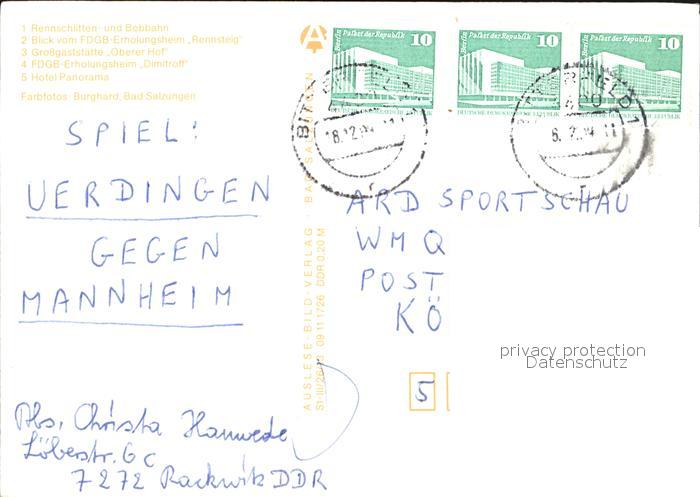 1 Rennschlitten- und Bobbahn
2 Blick vom FDGB-Erholungsheim „Rennsteig"
3 Großgaststätte „Oberer Hof"
4 FDGB-Erholungsheim „Dimitroff"
5 Hotel Panorama
Farbfotos: Burghard, Bad Salzungen
SPIEL:
UERDINGEN
GEGEN
MANNHEIM
Abs. Christa Hannwede
Löberstr. 6c
7272 Rackwitz DDR
AUSLESE-BILD-VERLAG · BAD SALZUNGEN
09 11 1726 DDR 0,20 M
Berlin Palast der Republik 10
DEUTSCHE DEMOKRATISCHE REPUBLIK
Berlin Palast der Republik 10
DEUTSCHE DEMOKRATISCHE REPUBLIK
Berlin Palast der Republik 10
DEUTSCHE DEMOKRATISCHE REPUBLIK
ARD SPORTSCHAU
WMQ
POST
KÖ
privacy protection
Datenschutz
5